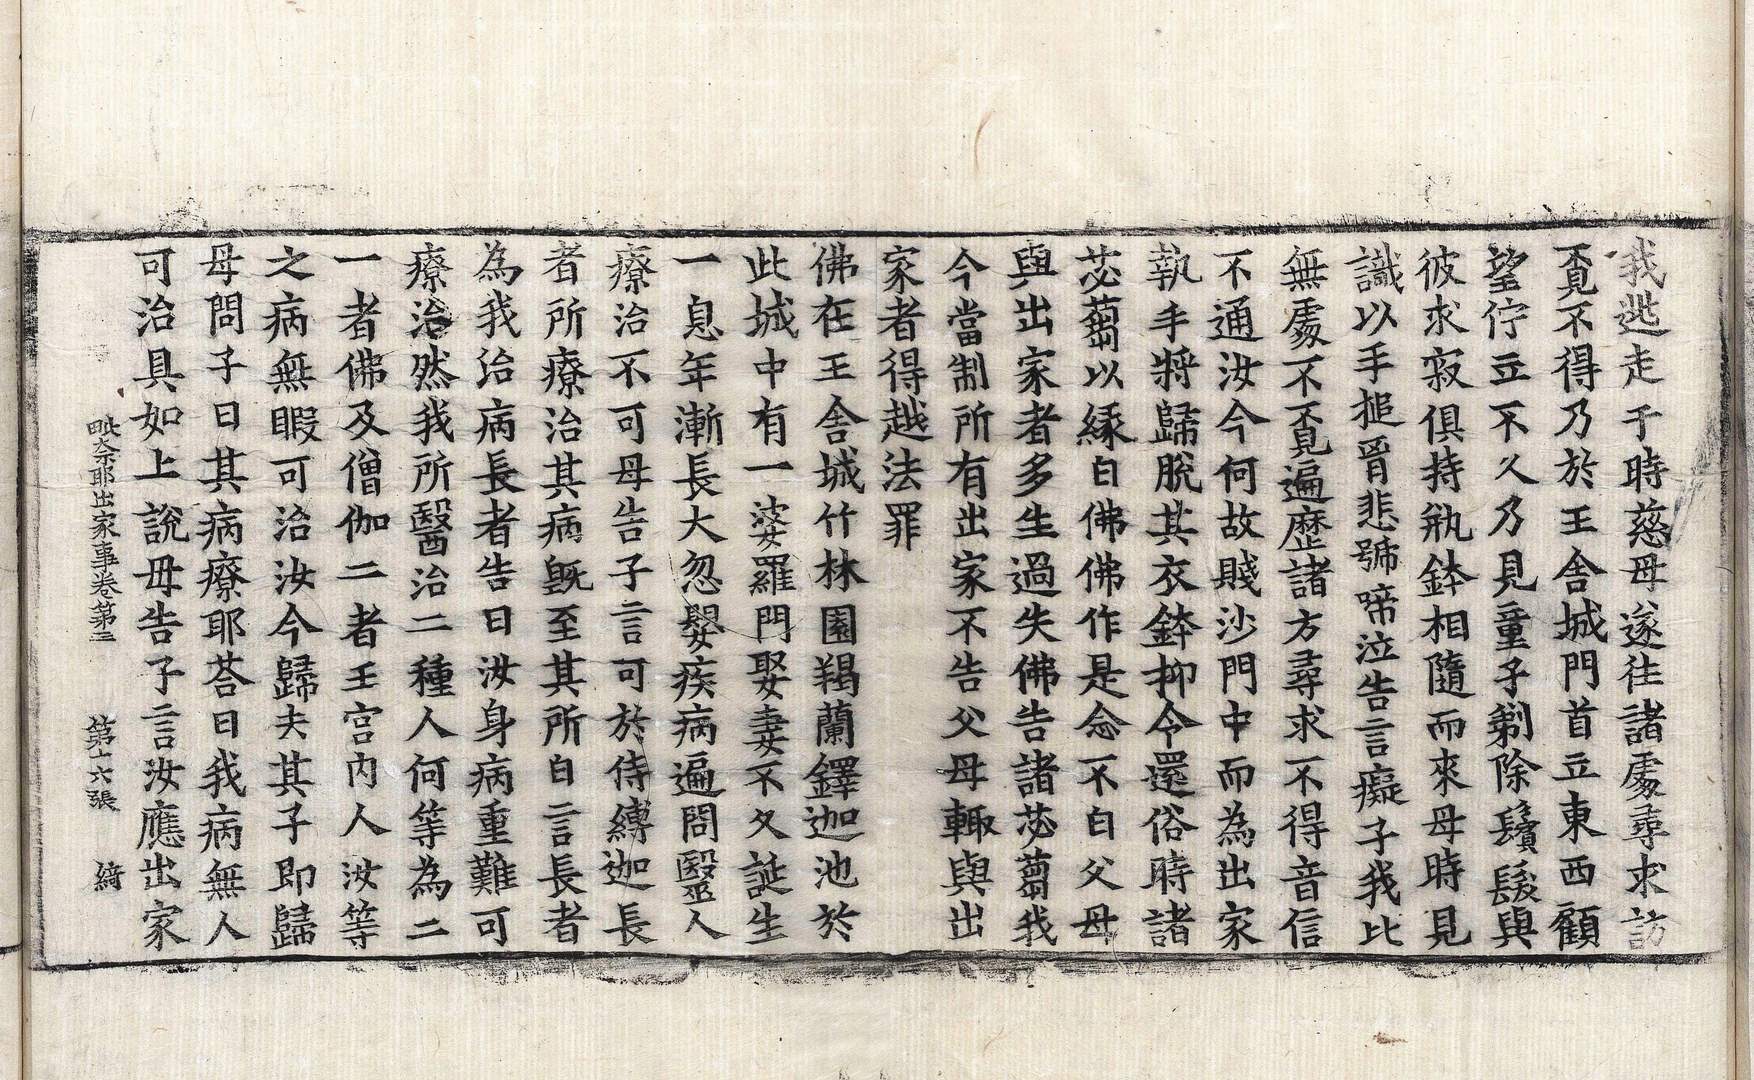 我逃走于時慈母遂往諸處尋求訪
覔不得乃於王舍城門首立東西顧
望佇立不久乃見童子剃除鬚髮與
彼求寂俱持瓶鉢相隨而來母時見
識以手搥胷悲號啼泣告言癡子我比
無處不覔遍歷諸方尋求不得音信
不通汝今何故賤沙門中而為出家
執手將歸脫其衣鉢抑令還俗時諸
苾蒭以緣白佛佛作是念不白父母
與出家者多生過失佛告諸苾蒭我
今當制所有出家不告父母輙與出
家者得越法罪
佛在王舍城竹林園羯蘭鐸迦池於
此城中有一婆羅門娶妻不久誕生
一息年漸長大忽嬰疾病遍問醫人
療治不可母告子言可於侍縛迦長
者所療治其病既至其所白言長者
為我治病長者告曰汝身病重難可
療治然我所醫治二種人何等為二
一者佛及僧伽二者王宮內人汝等
之病無暇可治汝今歸去其子即歸
母問子曰其病療耶荅曰我病無人
可治具如上說母告子言汝應出家
毗奈耶出家事卷第三 第十六張 綺